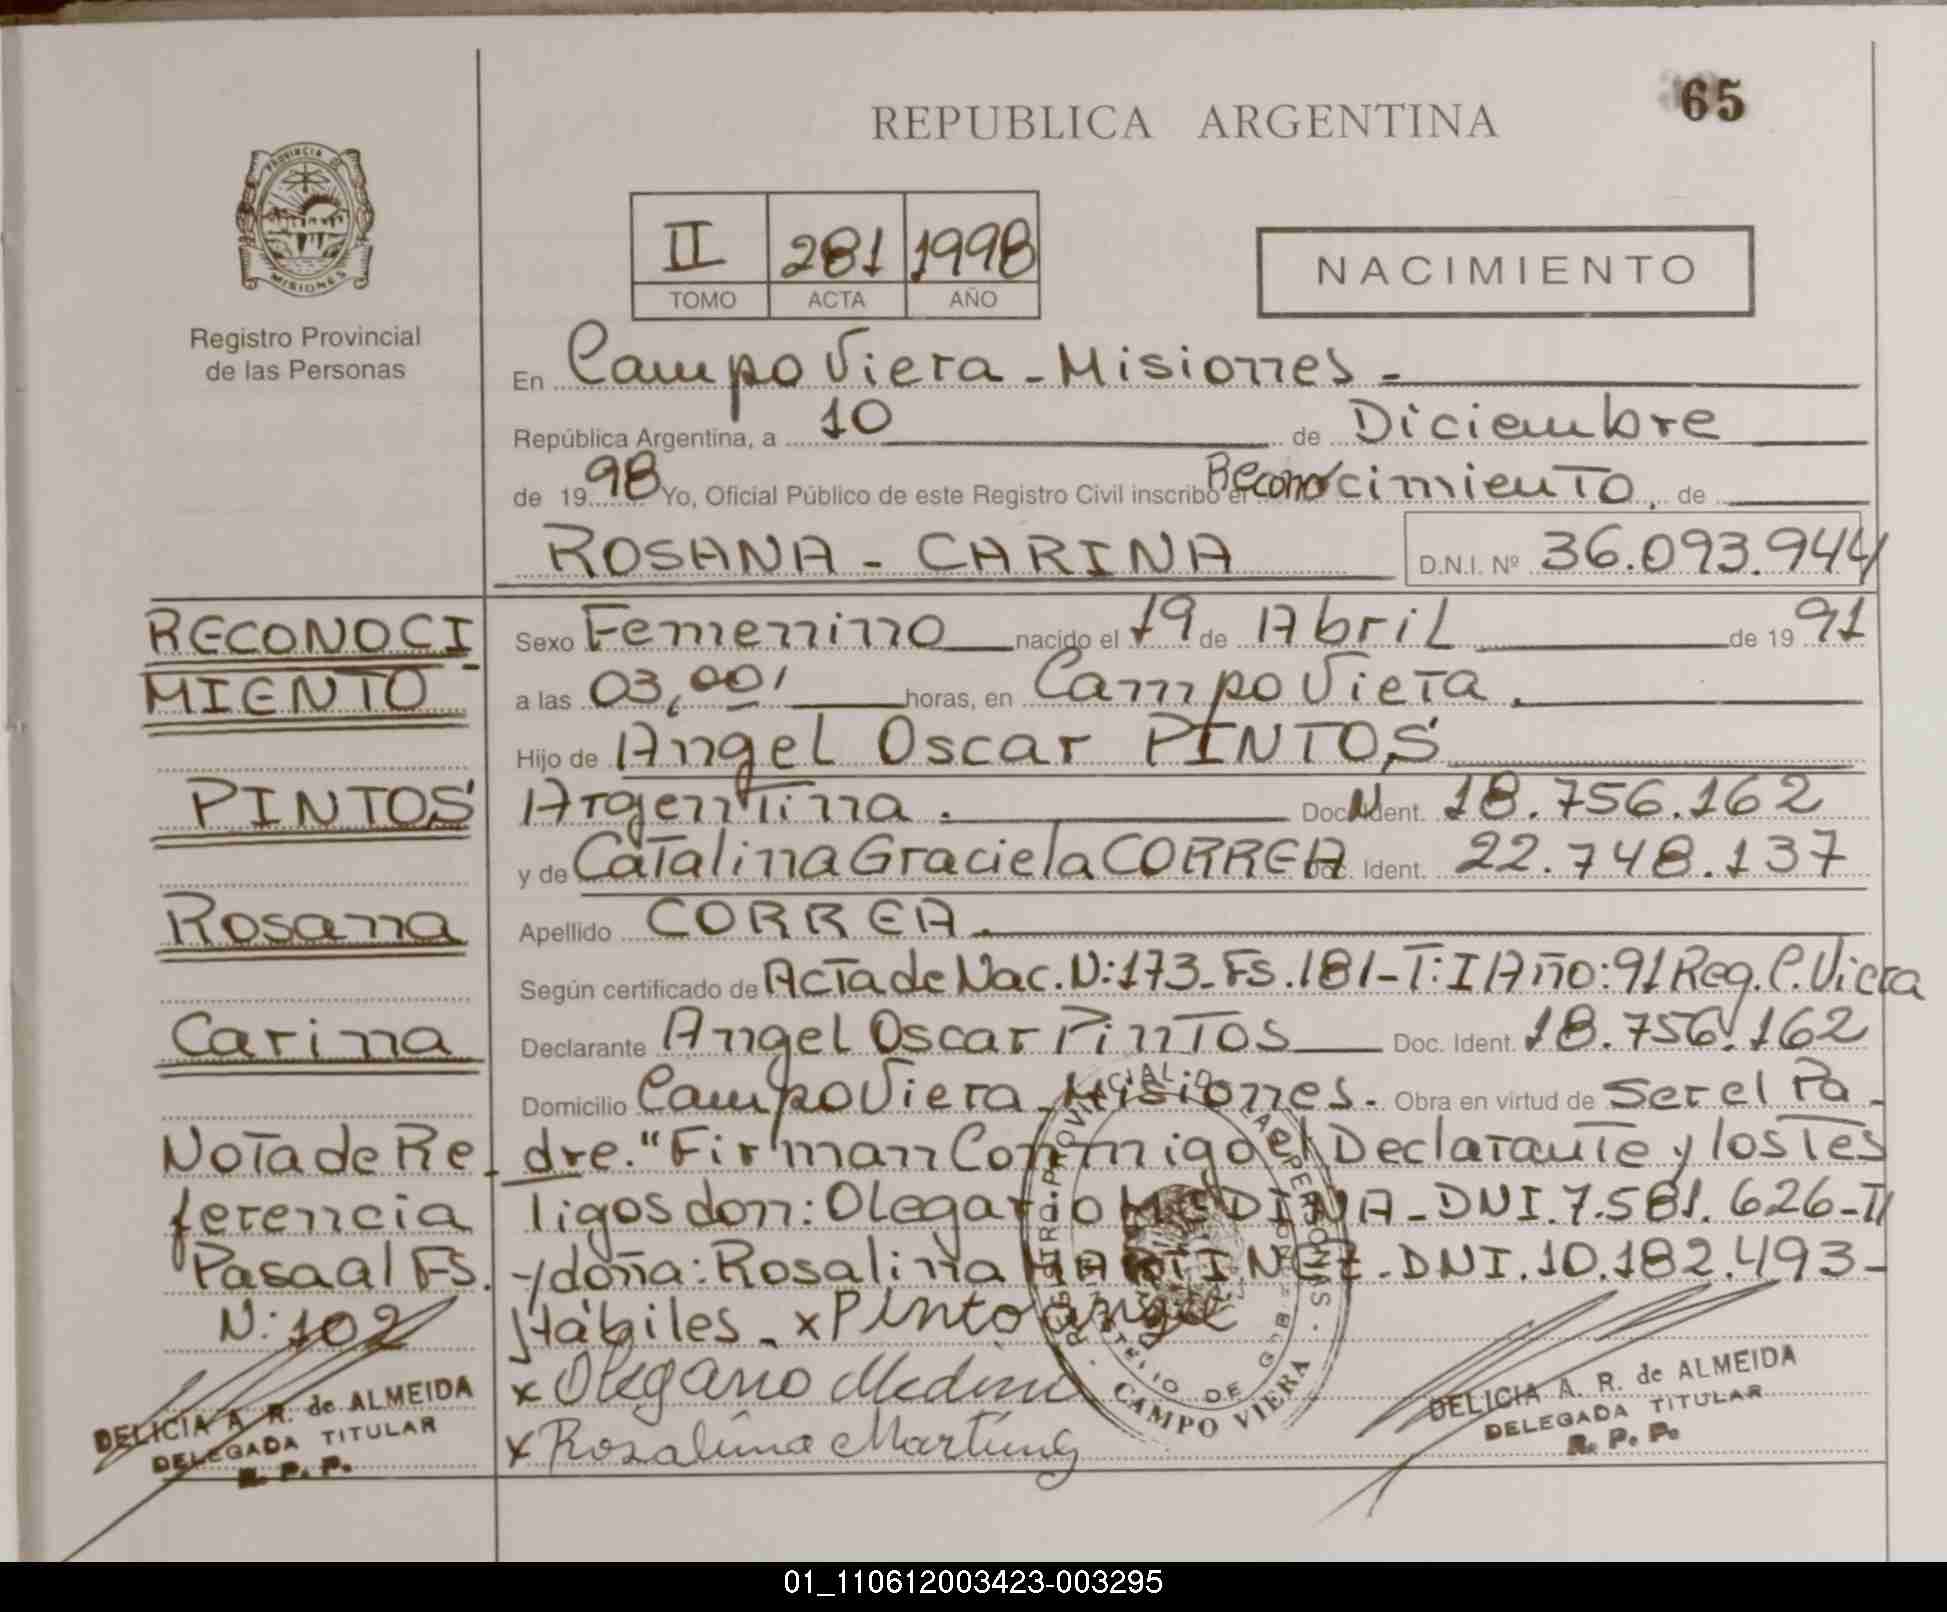 65
REPUBLICA ARGENTINA
PROVINCIA DE
MISIONES
Registro Provincial
de las Personas
II 281 1998
TOMO ACTA AÑO
NACIMIENTO
En Campo Viera - Misiones -
República Argentina, a 10 de Diciembre
de 1998 Yo, Oficial Público de este Registro Civil inscribo el Reconocimiento, de
ROSANA - CARINA D.N.I. Nº 36.093.944
Sexo Femenino nacido el 19 de Abril de 1991
a las 03,00' horas, en Campo Viera.
Hijo de Angel Oscar PINTOS
Argentina. Doc. Ident. 18.756.162
y de Catalina Graciela CORREA Doc. Ident. 22.748.137
Apellido CORREA.
Según certificado de Acta de Nac. N:173-Fs.181-T:I Año:91 Reg. C. Viera
Declarante Angel Oscar Pintos Doc. Ident. 18.756.162
Domicilio Campo Viera - Misiones. Obra en virtud de Ser el Pa-
dre. "Firman Conmigo el Declarante y los Tes
tigos don: Olegario MEDINA - DNI. 7.581.626-
y doña: Rosalina MARTINEZ. DNI. 10.182.493-
Hábiles. x Pinto angel
x Olegario Medina
x Rosalina Martinez
RECONOCI-
MIENTO
PINTOS
Rosana
Carina
Nota de Re-
ferencia
Pasa al Fs.
N: 102
DELICIA A. R. de ALMEIDA
DELEGADA TITULAR
R. P. P.
REGISTRO PROVINCIAL DE LAS PERSONAS
CAMPO VIERA
DELICIA A. R. de ALMEIDA
DELEGADA TITULAR
R. P. P.
01_110612003423-003295